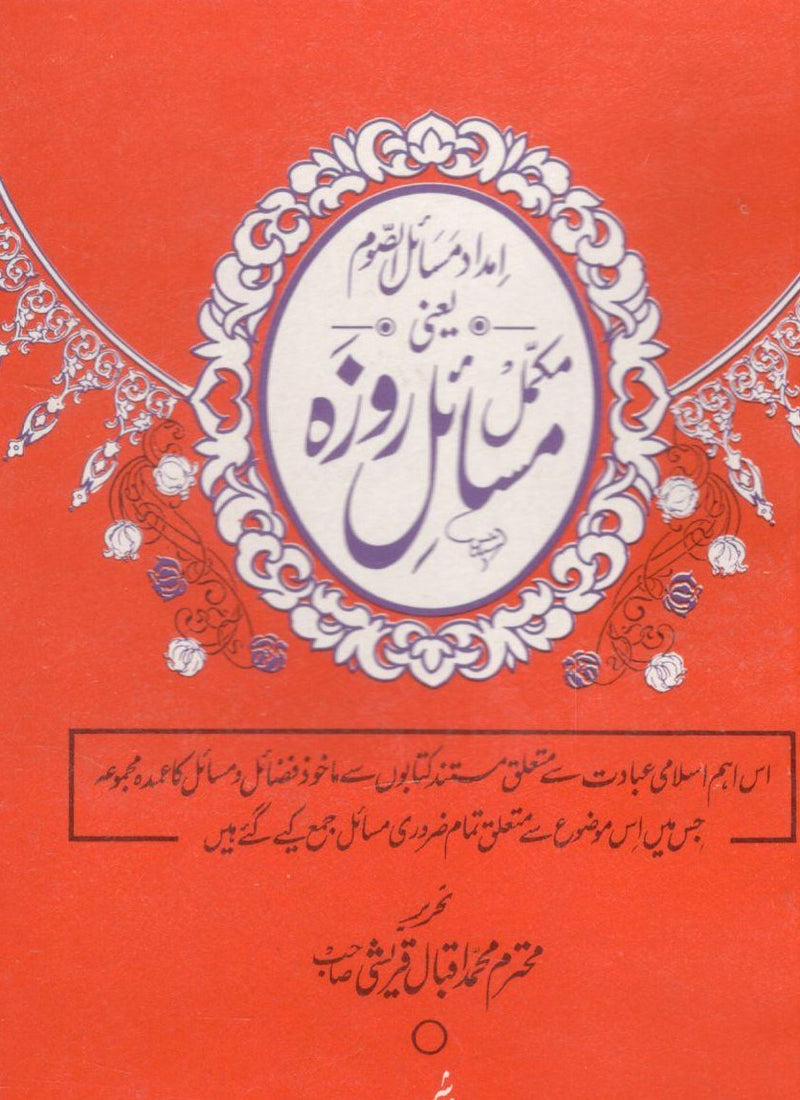 اِمداد مَسَائل الصَّوم
یعنی
مکمّل
مسائلِ روزَہ
اس اہم اسلامی عبادت سے متعلق مستند کتابوں سے ماخوذ فضائل و مسائل کا عمدہ مجموعہ
جس میں اِس موضوع سے متعلق تمام ضروری مسائل جمع کیے گئے ہیں
تحریر
محترم محمّد اقبال قریشی صاحب